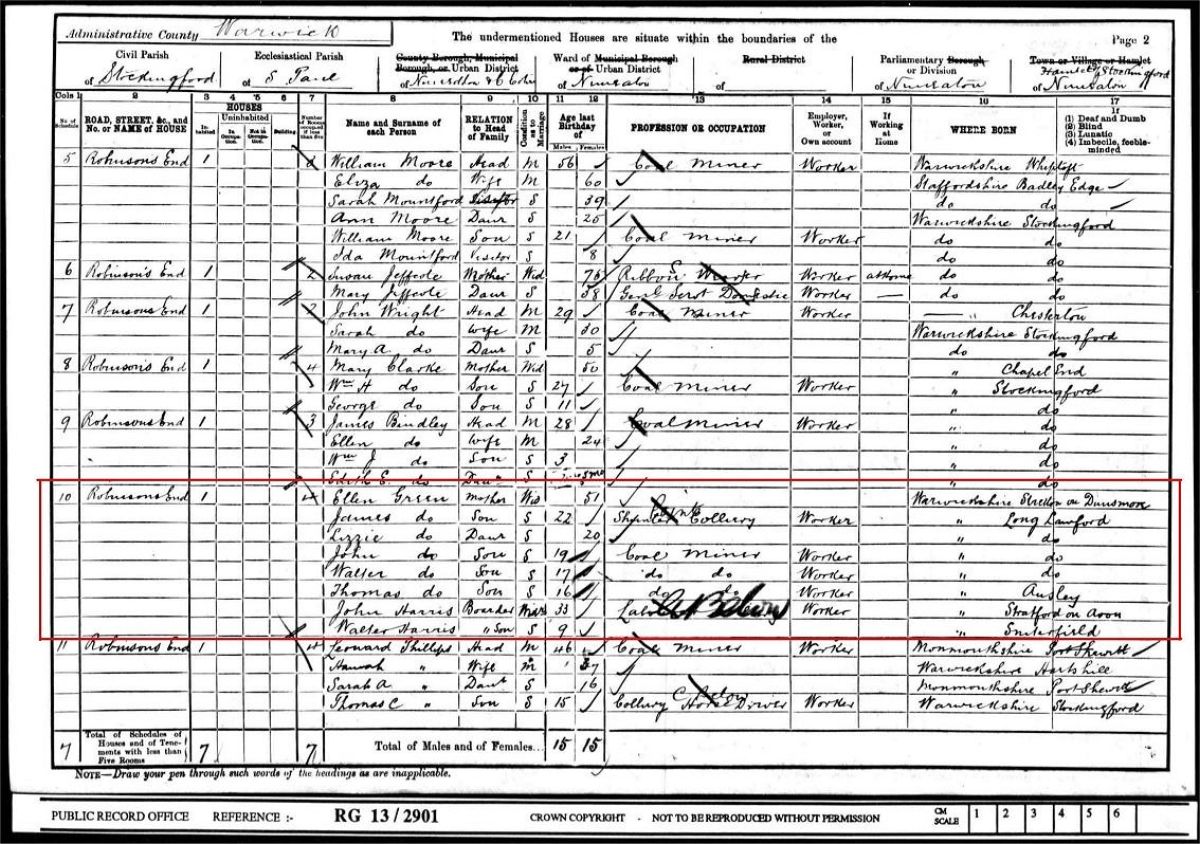 Administrative County Warwick
The undermentioned Houses are situate within the boundaries of the
Page 2
Civil Parish of Stockingford
Ecclesiastical Parish of S Paul
County Borough, Municipal Borough, or Urban District of Nuneaton & Chilvers
Ward of Municipal Borough or of Urban District of Nuneaton
Rural District
Parliamentary Borough or Division of Nuneaton
Town or Village or Hamlet Hamlet of Stockingford of Nuneaton
Cols 1 2 3 4 5 6 7 8 9 10 11 12 13 14 15 16 17
No. of Schedule
ROAD, STREET, &c., and No. or NAME of HOUSE
HOUSES
Inhabited
Uninhabited
In Occupation
Not in Occupation
Building
Number of Rooms occupied if less than five
Name and Surname of each Person
RELATION to Head of Family
Condition as to Marriage
Age last Birthday of
Males Females
PROFESSION OR OCCUPATION
Employer, Worker, or Own account
If Working at Home
WHERE BORN
If (1) Deaf and Dumb (2) Blind (3) Lunatic (4) Imbecile, feeble-minded
5 Robinsons End 1 William Moore Head M 56 Coal Miner Worker Warwickshire
Eliza do Wife M 60 Staffordshire Badley Edge
Sarah Mountford Visitor S 39 do do
Ann Moore Daur S 25 Warwickshire Stockingford
William Moore Son S 21 Coal Miner Worker do do
Ida Mountford Visitor S 8 do do
6 Robinsons End 1 2 Susan Jeffcote Mother Wid 76 Ribbon Weaver Worker at Home do do
Mary Jeffcote Daur S 38 Genl Servt Domestic Worker — do do
7 Robinsons End 1 John Wright Head M 29 Coal Miner Worker — " Chesterton
Sarah do Wife M 30 Warwickshire Stockingford
Mary A. do Daur S 5 do do
8 Robinsons End 1 4 Mary Clarke Mother Wid 50 " Chapel End
Wm H do Son S 27 Coal Miner Worker " Stockingford
George do Son S 11 " do
9 Robinsons End 1 3 James Bindley Head M 28 Coal Miner Worker " do
Ellen do Wife M 24 " do
Wm J do Son S 3 " do
Edith E. do Daur S " do
10 Robinsons End 1 4 Ellen Green Mother Wid 51 Warwickshire Stretton on Dunsmore
James do Son S 22 Colliery Worker " Long Lawford
Lizzie do Daur S 20 " do
John do Son S 19 Coal Miner Worker " do
Walter do Son S 17 do do Worker " do
Thomas do Son S 16 do do Worker " Ansley
John Harris Boarder Wid 33 Worker " Stratford on Avon
Walter Harris " Son S 9 " Snitterfield
11 Robinsons End 1 4 Leonard Phillips Head M 46 Coal Miner Worker Monmouthshire Port Skewitt
Hannah " Wife M 37 Warwickshire Hartshill
Sarah A " Daur S 16 Monmouthshire Port Skewitt
Thomas C " Son S 15 Colliery Horse Driver Worker Warwickshire Stockingford
7 Total of Schedules of Houses and of Tenements with less than Five Rooms 7 7 Total of Males and of Females... 15 15
NOTE—Draw your pen through such words of the headings as are inapplicable.
PUBLIC RECORD OFFICE REFERENCE :- RG 13/2901 CROWN COPYRIGHT - NOT TO BE REPRODUCED WITHOUT PERMISSION CM SCALE 1 2 3 4 5 6